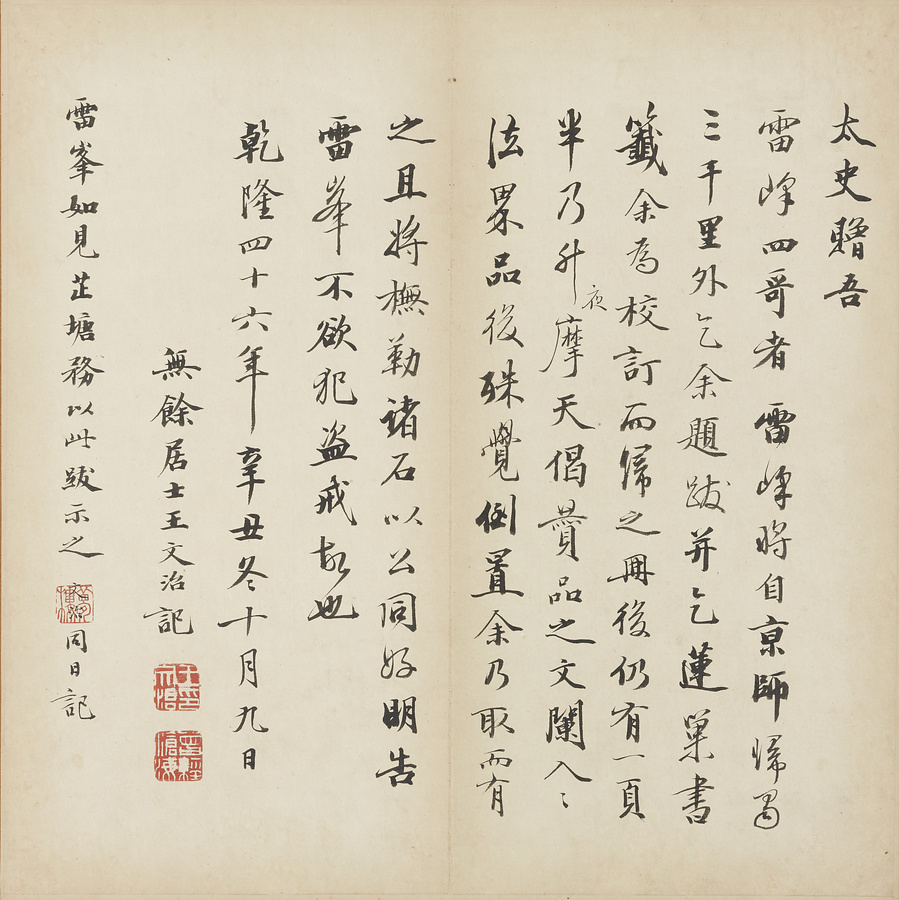 太史贈吾
雷峰四哥者雷峰將自京師歸蜀
三千里外乞余題跋并乞蓮巢書
籤余為校訂而歸之冊後仍有一頁
半乃升夜摩天偈讚品之文闌入
法界品後殊覺倒置余乃取而有
之且將橅勒諸石以公同好明告
雷峯不欲犯盜戒故也
乾隆四十六年辛丑冬十月九日
無餘居士王文治記
雷峯如見芷塘務以此跋示之 同日記